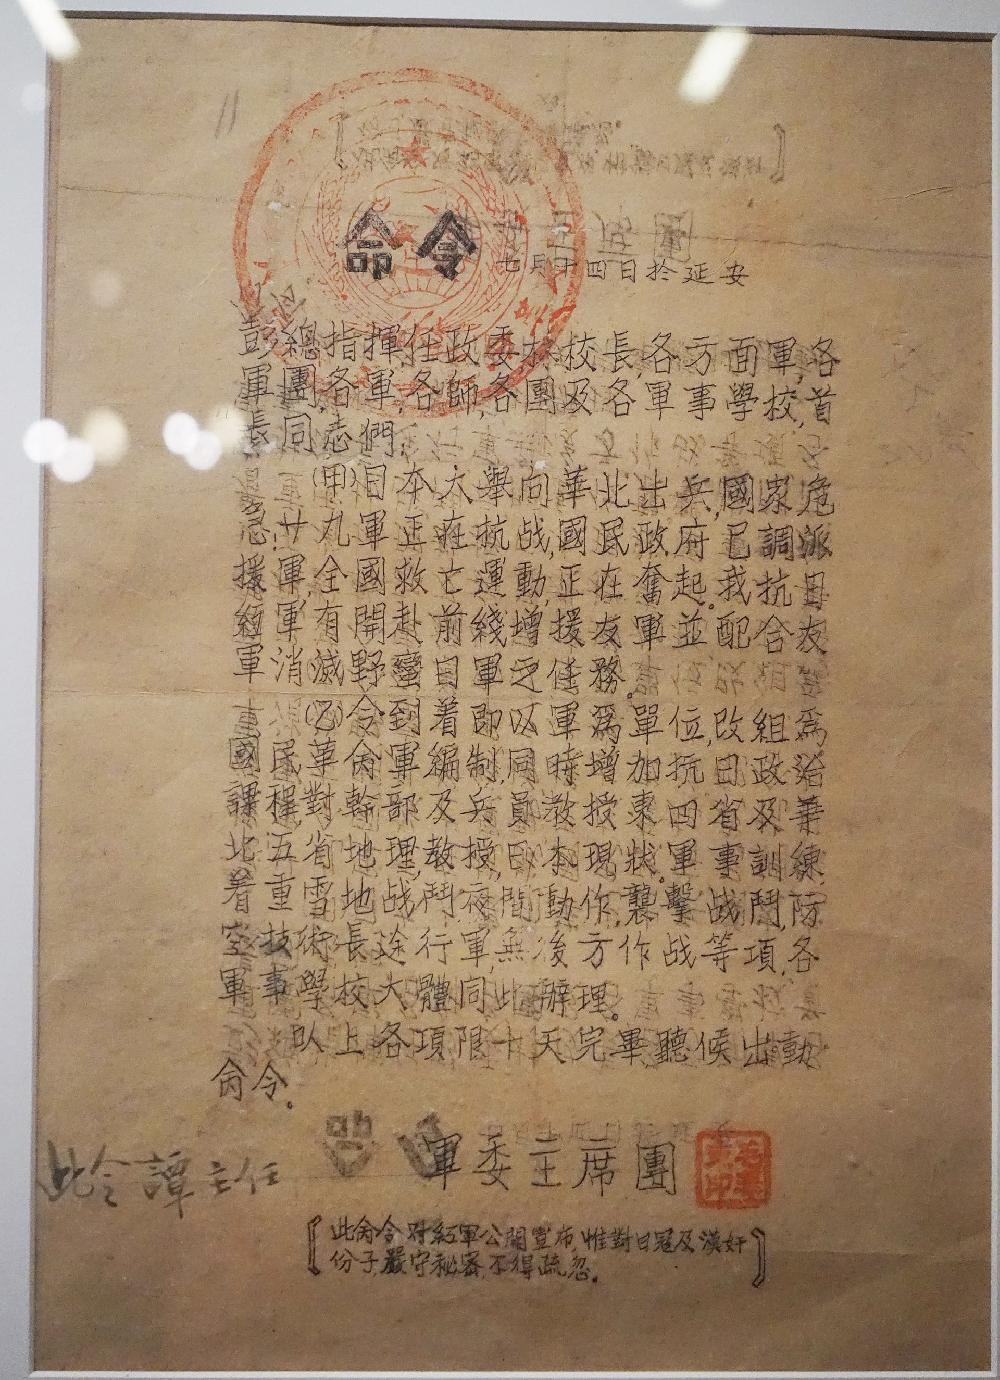 命令 七月十四日於延安
彭總指揮,任政委,林校長,各方面軍,各
軍團,各軍,各師,各團及各軍事學校,首
長同志們:
(甲)日本大舉向華北出兵,國家危
急,廿九軍正在抗战,國民政府已調派
援軍,全國救亡運動,正在奮起。我抗日
紅軍,有開赴前綫增援友軍並配合友
軍消滅野蠻日軍之任務。
(乙)令到着即以軍爲單位,改組爲
國民革命軍編制,同時增加抗日政治
課程,對幹部及兵員教授東四省及華
北五省地理,教授日本現狀。軍事訓練
着重雪地战鬥,夜間動作,襲擊战鬥,防
空技術,長途行軍,無後方作战等項,各
軍事學校大體同此辦理。
以上各項限十天完畢聽候出動
命令。
軍委主席團
此令譚主任
[此命令对紅軍公開宣布,惟對日冠及漢奸
份子,嚴守秘密,不得疏忽。]